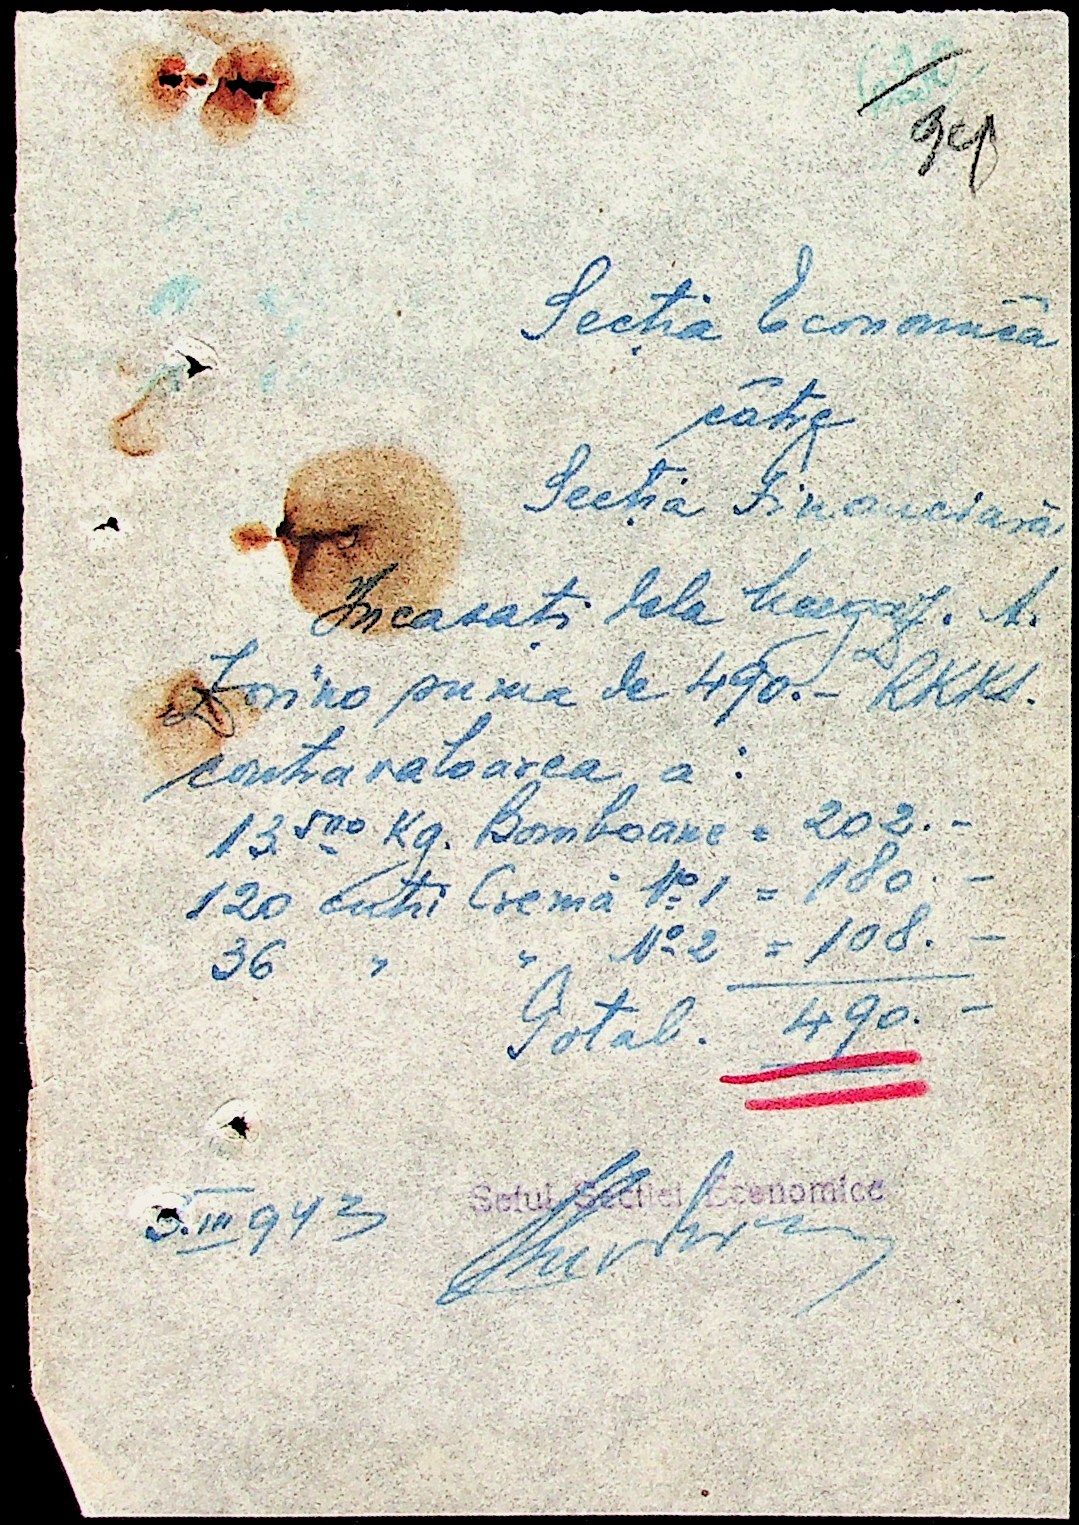 94
Secția Economică
cătrę
Secția Financiară
Incasați dela A.
Zorino suma de 490.- RKKS.
contravaloarea a:
13.500 Kg. Bomboane = 202.-
120 cutii Cremă No 1 = 180.-
36 " " No 2 = 108.-
Total. 490.-
Seful Sectiei Economice
3.III 943